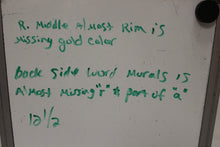 R. Middle Almost Rim is
Missing gold color
back side word Murals is
Almost Missing "r" & part of "a"
12 1/2